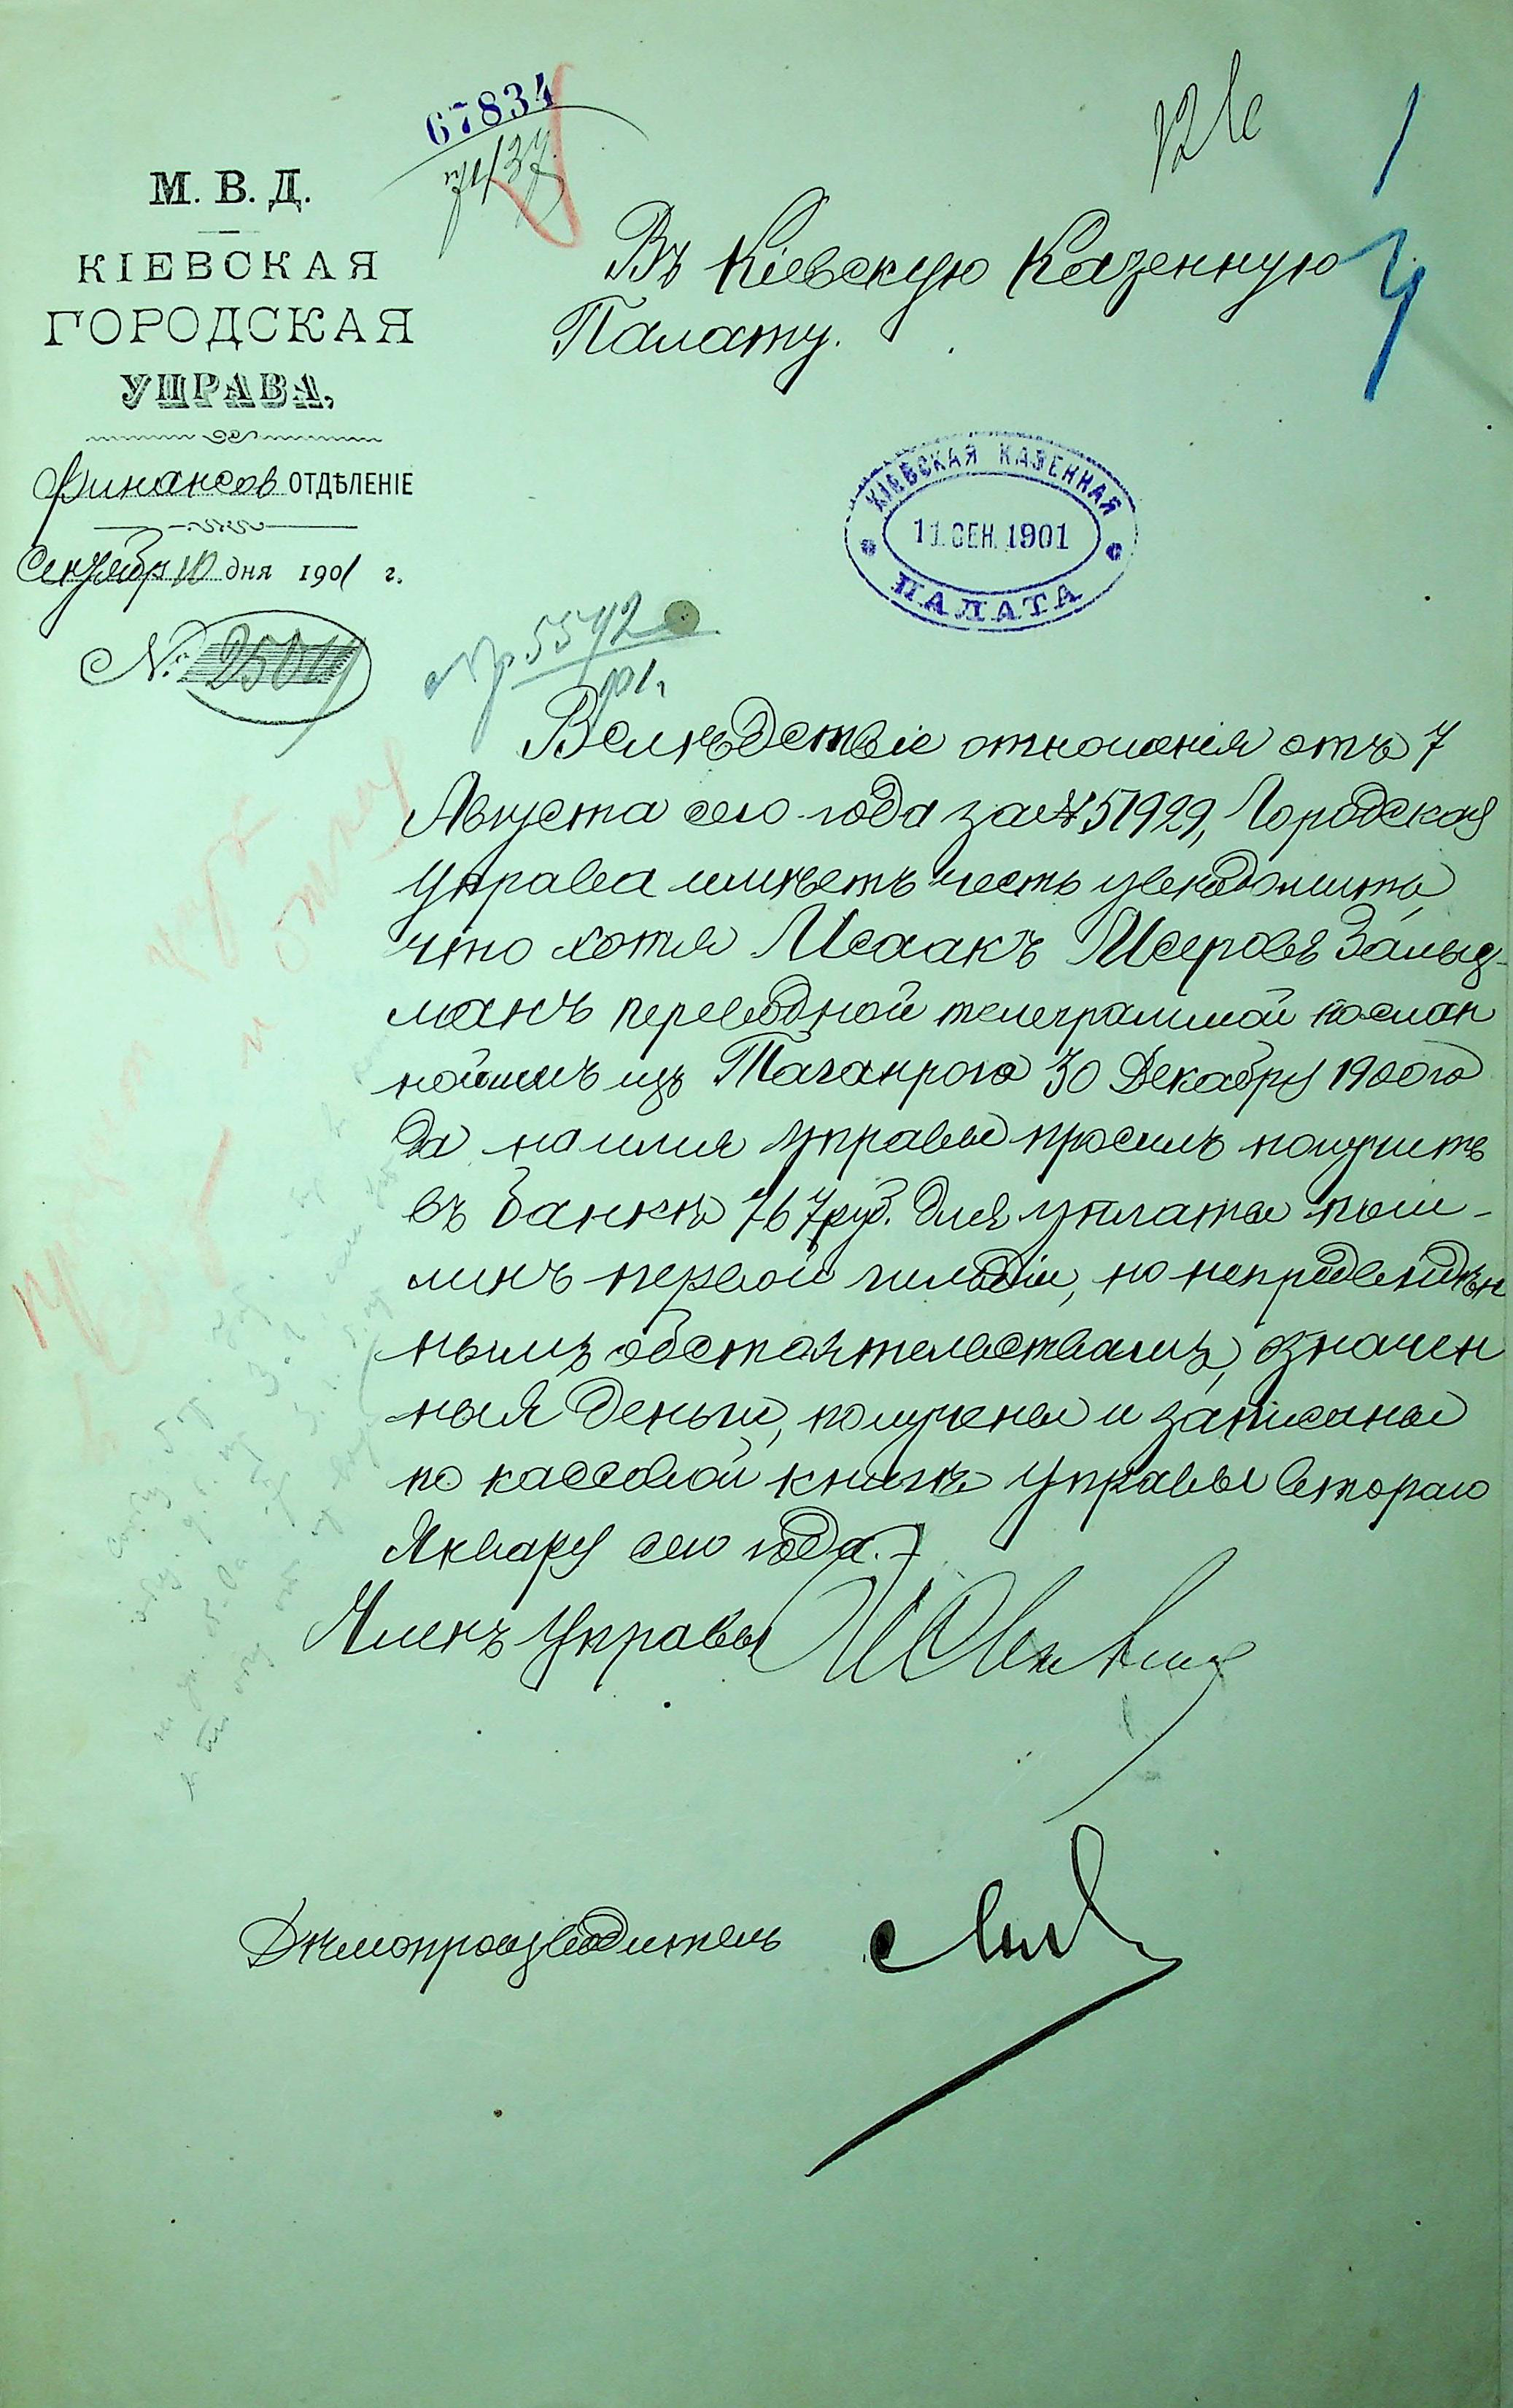 67834
М. В. Д.
КІЕВСКАЯ
ГОРОДСКАЯ
УПРАВА,
Финансов ОТДѢЛЕНІЕ
Сентябр 10 дня 1901 г.
№
Въ Кіевскую Казенную
Палату.
КІЕВСКАЯ КАЗЕННАЯ
11 СЕН. 1901
ПАЛАТА
Вслѣдствіе отношенія отъ 7
Августа сего года за № 51929, Городская
Управа имѣетъ честь увѣдомить,
что хотя Исаакъ Мееровъ Зальц-
манъ переводной телеграммой послан
ной имъ изъ Таганрога 30 Декабря 1900 го
да на имя Управы просилъ получить
въ банкѣ 767 руб. для уплаты пош-
линъ первой гильдіи, но непредвидѣн
нымъ обстоятельствамъ, означен
ныя деньги, получены и записаны
по кассовой книгѣ Управы втораго
Января сего года.
Членъ Управы
Дѣлопроизводитель